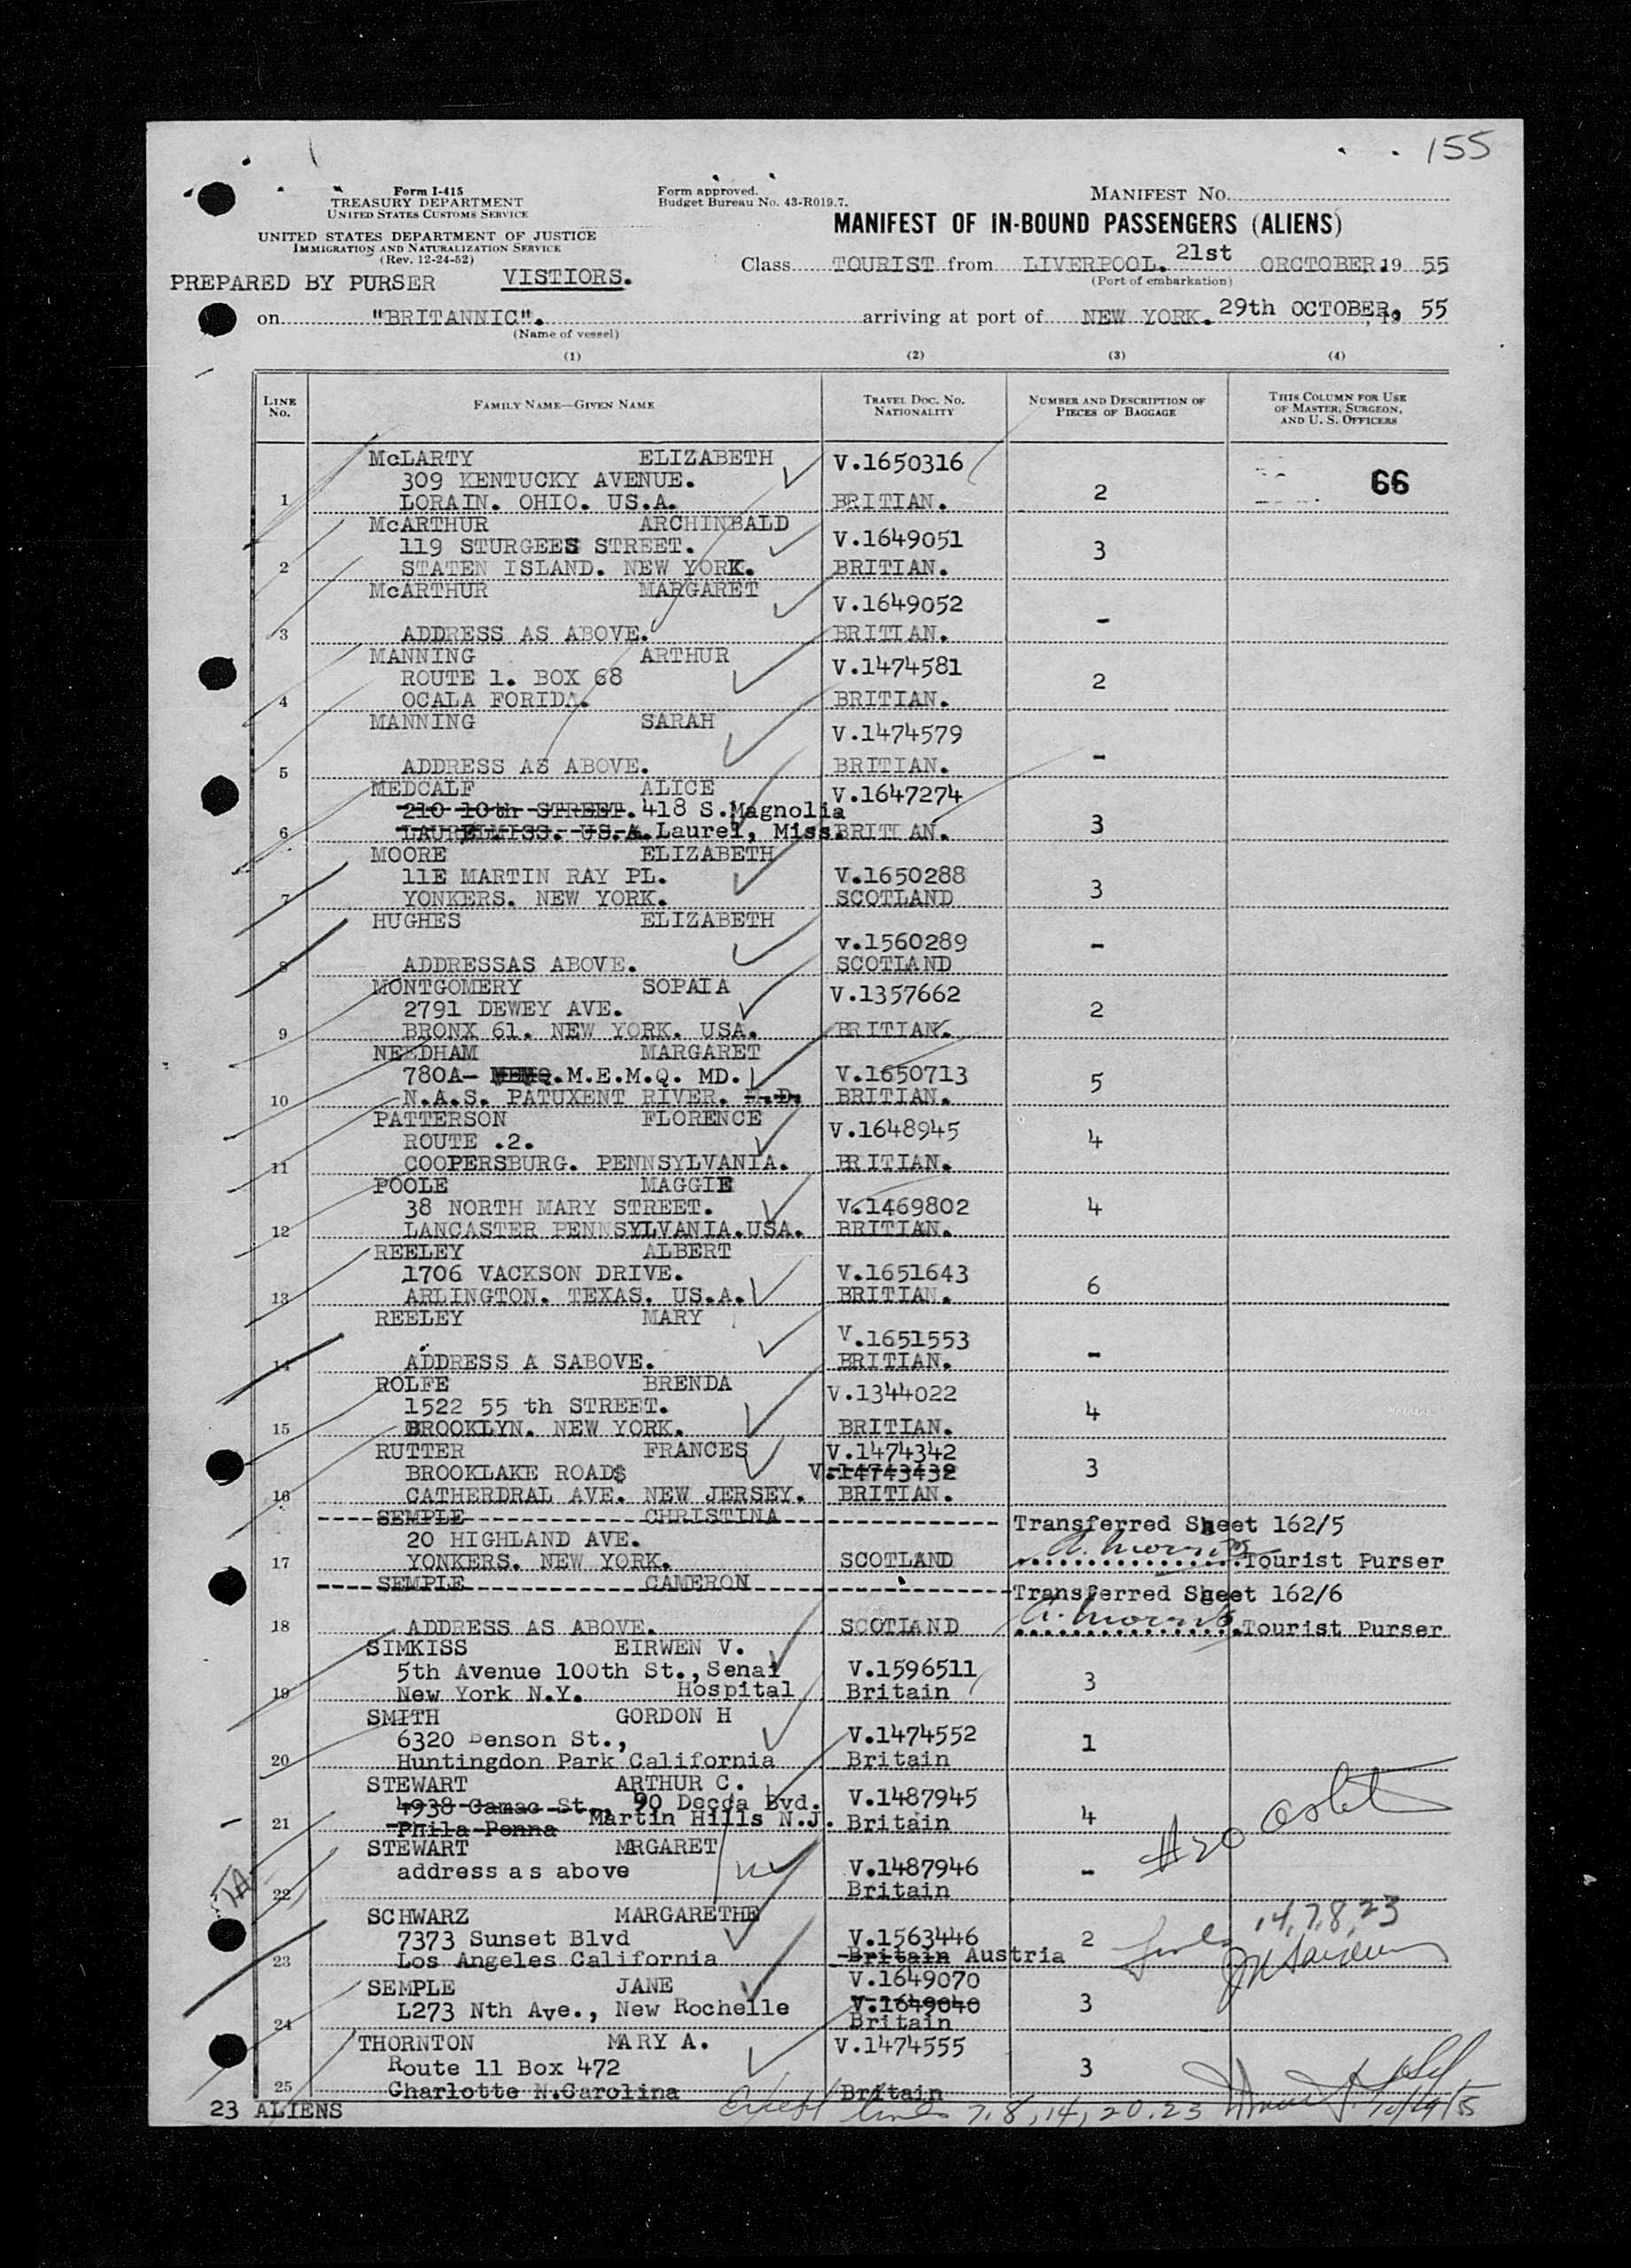 155
Form I-415
TREASURY DEPARTMENT
UNITED STATES CUSTOMS SERVICE
UNITED STATES DEPARTMENT OF JUSTICE
IMMIGRATION AND NATURALIZATION SERVICE
(Rev. 12-24-52)
Form approved.
Budget Bureau No. 43-R019.7.
MANIFEST NO.
MANIFEST OF IN-BOUND PASSENGERS (ALIENS)
Class TOURIST from LIVERPOOL. 21st ORCTOBER. 19 55
(Port of embarkation)
PREPARED BY PURSER VISTIORS.
on "BRITANNIC". arriving at port of NEW YORK. 29th OCTOBER, 19 55
(Name of vessel)
(1) (2) (3) (4)
LINE NO.
FAMILY NAME—GIVEN NAME
TRAVEL DOC. NO. NATIONALITY
NUMBER AND DESCRIPTION OF PIECES OF BAGGAGE
THIS COLUMN FOR USE OF MASTER, SURGEON, AND U. S. OFFICERS
McLARTY ELIZABETH V.1650316
309 KENTUCKY AVENUE. 66
1 LORAIN. OHIO. US.A. BRITIAN. 2
McARTHUR ARCHINBALD
119 STURGEES STREET. V.1649051 3
2 STATEN ISLAND. NEW YORK. BRITIAN.
McARTHUR MARGARET V.1649052
3 ADDRESS AS ABOVE. BRITIAN. -
MANNING ARTHUR V.1474581
ROUTE 1. BOX 68 2
4 OCALA FORIDA. BRITIAN.
MANNING SARAH V.1474579
5 ADDRESS AS ABOVE. BRITIAN. -
MEDCALF ALICE V.1647274
210 10th STREET. 418 S.Magnolia
6 LAURELMISS. US.A. Laurel, Miss. BRITIAN. 3
MOORE ELIZABETH
11E MARTIN RAY PL. V.1650288 3
7 YONKERS. NEW YORK. SCOTLAND
HUGHES ELIZABETH
v.1560289 -
8 ADDRESSAS ABOVE. SCOTLAND
MONTGOMERY SOPAIA V.1357662
2791 DEWEY AVE. 2
9 BRONX 61. NEW YORK. USA. BRITIAN.
NEEDHAM MARGARET
780A- MEMQ.M.E.M.Q. MD. V.1650713 5
10 N.A.S. PATUXENT RIVER. M.D. BRITIAN.
PATTERSON FLORENCE V.1648945
ROUTE .2. 4
11 COOPERSBURG. PENNSYLVANIA. BRITIAN.
POOLE MAGGIE
38 NORTH MARY STREET. V.1469802 4
12 LANCASTER PENNSYLVANIA.USA. BRITIAN.
REELEY ALBERT
1706 VACKSON DRIVE. V.1651643 6
13 ARLINGTON. TEXAS. US.A. BRITIAN.
REELEY MARY V.1651553
14 ADDRESS A SABOVE. BRITIAN. -
ROLFE BRENDA V.1344022
1522 55 th STREET. 4
15 BROOKLYN. NEW YORK. BRITIAN.
RUTTER FRANCES V.1474342
BROOKLAKE ROAD$ V.14743432 3
16 CATHERDRAL AVE. NEW JERSEY. BRITIAN.
SEMPLE CHRISTINA Transferred Sheet 162/5
20 HIGHLAND AVE.
17 YONKERS. NEW YORK. SCOTLAND Tourist Purser
SEMPLE CAMERON Transferred Sheet 162/6
18 ADDRESS AS ABOVE. SCOTLAND Tourist Purser
SIMKISS EIRWEN V.
5th Avenue 100th St., Senai V.1596511 3
19 New York N.Y. Hospital Britain
SMITH GORDON H
6320 Benson St., V.1474552 1
20 Huntingdon Park California Britain
STEWART ARTHUR C.
4938 Camac St., 90 Decca Bvd. V.1487945
21 Phila Penna Martin Hills N.J. Britain 4
STEWART MRGARET #20
address as above V.1487946 -
22 Britain
SCHWARZ MARGARETHE 14, 7, 8, 23
7373 Sunset Blvd V.1563446 2
23 Los Angeles California Britain Austria
SEMPLE JANE V.1649070
L273 Nth Ave., New Rochelle V.1649040 3
24 Britain
THORNTON MARY A. V.1474555
Route 11 Box 472 3
25 Charlotte N.Carolina Britain
23 ALIENS Except lines 7, 8, 14, 20, 23 10/29/55